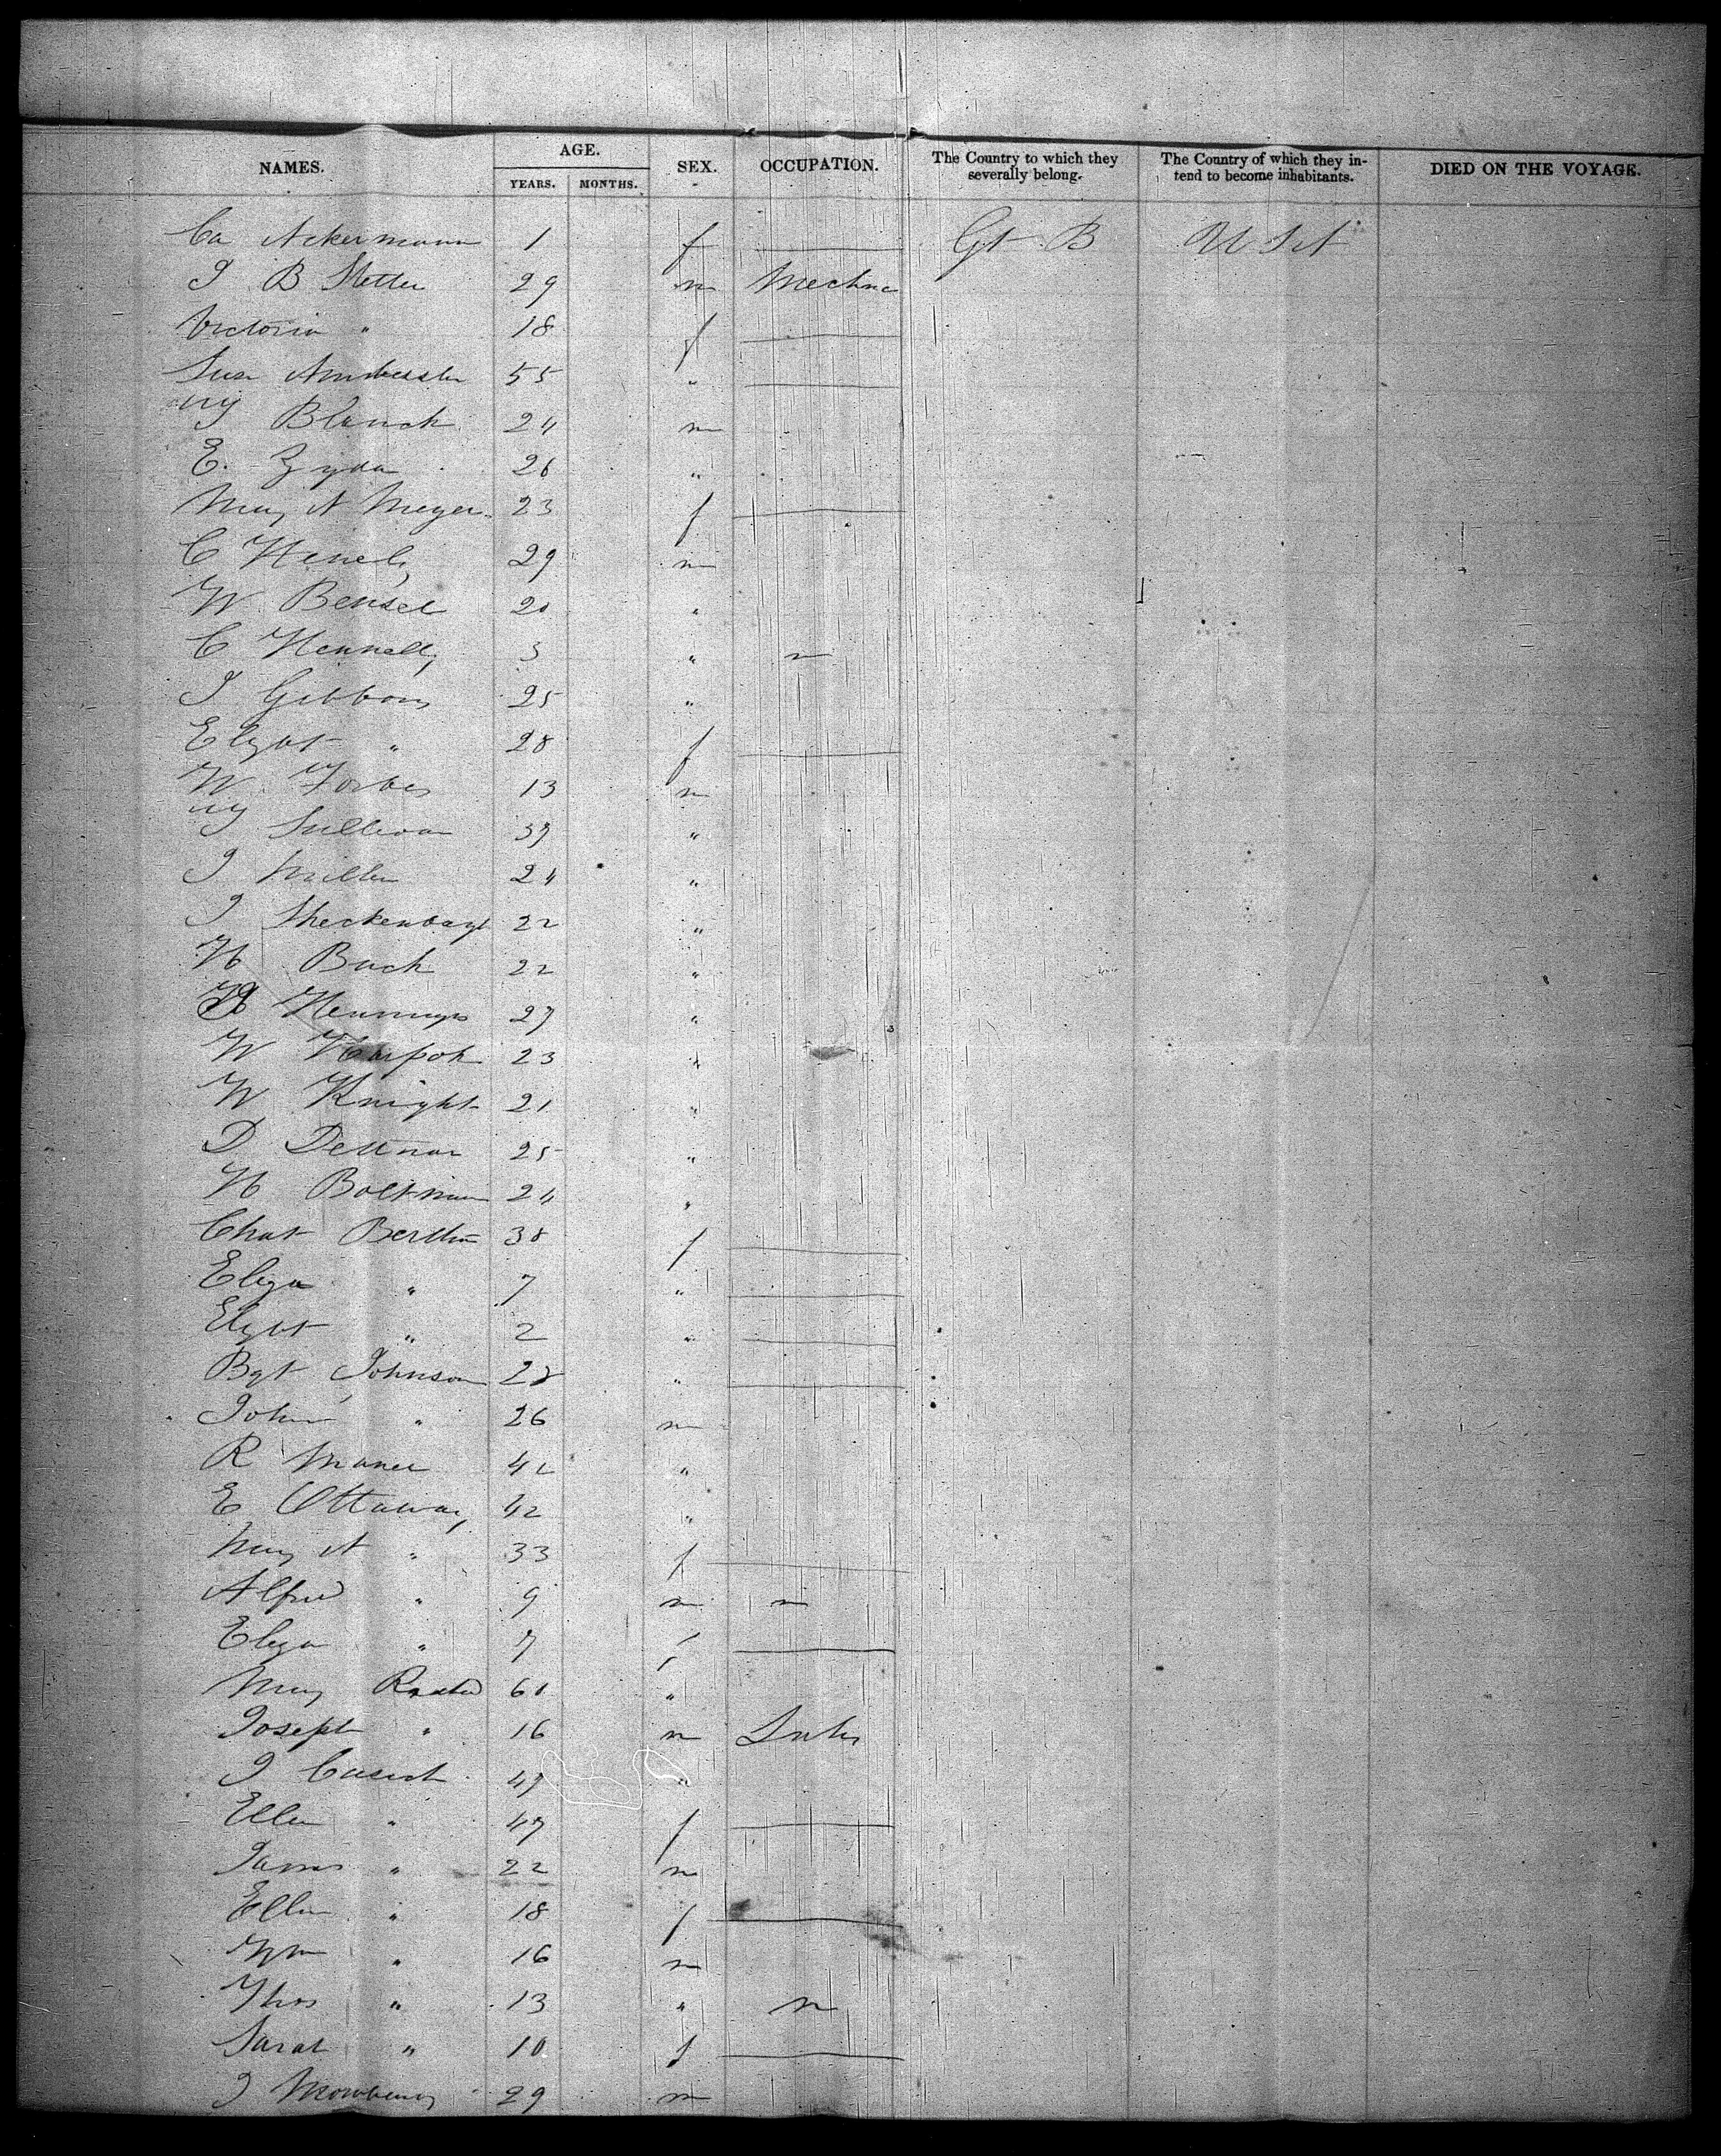 NAMES. AGE. SEX. OCCUPATION. The Country to which they severally belong. The Country of which they intend to become inhabitants. DIED ON THE VOYAGE.
YEARS. MONTHS.
Ca Ackermann 1 f Gt B U St
J B Stetter 29 m Mechnc
Victoria " 18 f
55 "
Blanch 24 m
E. Zyda 26 "
Mary A Meyer 23 f
C 29 m
W Bensel 20 "
C Hennelly 3 " m
J Gibbons 25 "
Elizbt " 28 f
W. Forbes 13 m
Sullivan 37 "
J Miller 24 "
J 22 "
H Buch 22 "
Hennings 27 "
W 23 "
W Knight 21 "
D Dettmar 25 "
H Boltman 24 "
Chat Berthn 38 f
Eliza " 7 "
Elizbt " 2 "
Bgt Johnson 28 "
John " 26 m
R 42 "
E Ottaway 42 "
Mary A " 33 f
Alfred " 9 m m
Eliza " 7 f
Mary 60 "
Joseph " 16 m
J 47 "
Ellen " 47 f
James " 22 m
Ellen " 18 f
Wm " 16 m
Thos " 13 " m
Sarah " 10 f
J 29 m